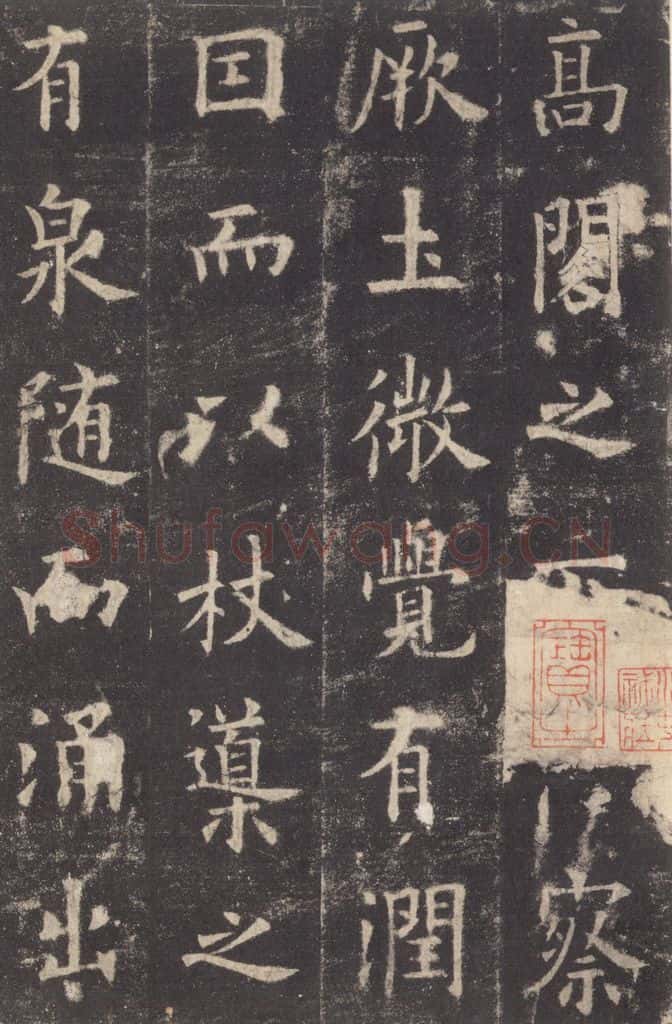 髙閣之下察
厥圡微覺有潤
囙而以杖導之
有泉随而涌出
Shufawang.CN